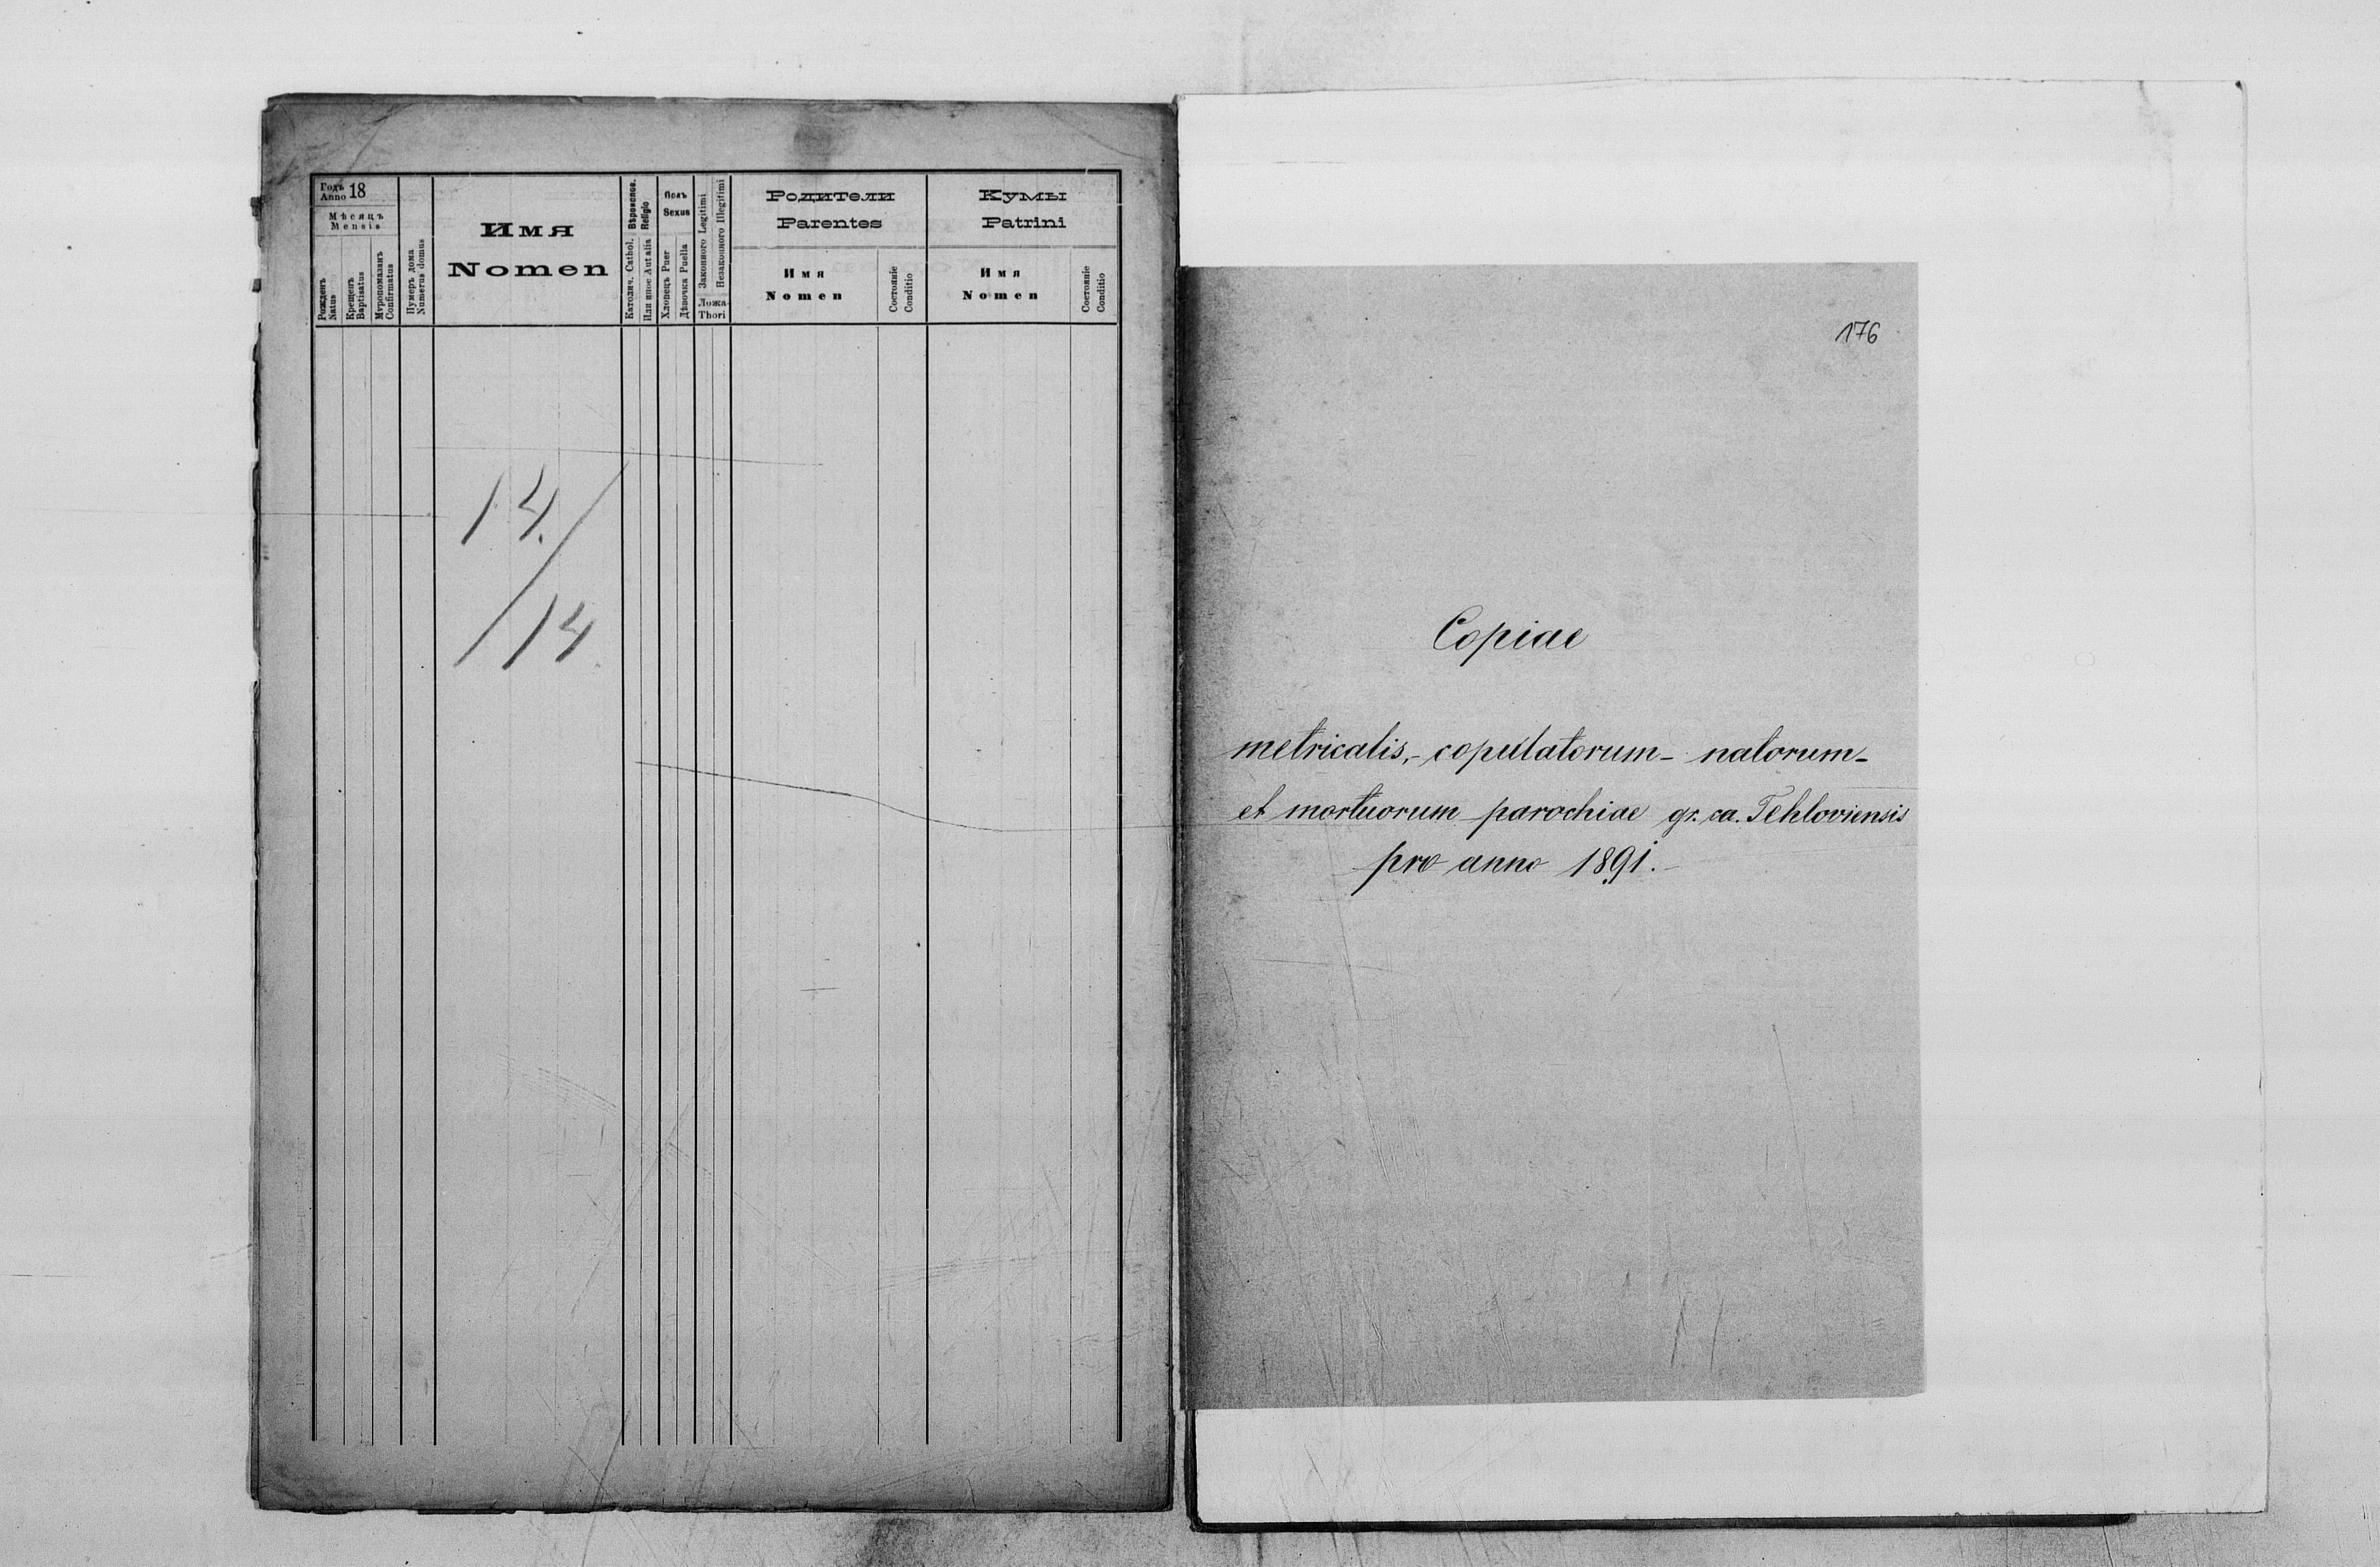 Годъ
Anno 18
Мѣсяцъ
Mensis
Рожденъ
Natus
Крещенъ
Baptisatus
Мѵропомазанъ
Confirmatus
Нумеръ дома
Numerus domus
Имя
Nomen
Религіо
Religio
Католич. Cathol.
Или иное Aut alia
Полъ
Sexus
Хлопецъ Puer
Дѣвочка Puella
Законного Legitimi
Незаконного Illegitimi
Ложа
Thori
Родители
Parentes
Имя
Nomen
Состояніе
Conditio
Кумы
Patrini
Имя
Nomen
Состояніе
Conditio
14.
/14
176
Copiae
metricalis,- copulatorum- natorum-
et mortuorum parochiae gr. ca. Tehloviensis
pro anno 1891.